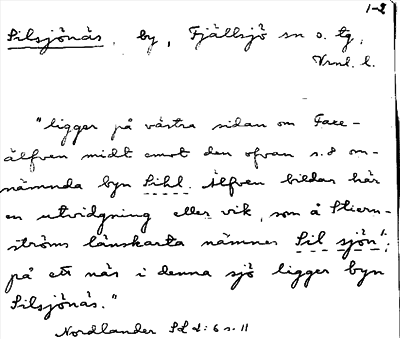 1-2
Silsjönäs, by, Fjällsjö sn o. tg,
Vrnl. l.
"ligger på västra sidan om Faxe-
älfven midt emot den ofvan s. 8 om-
nämnda byn Sihl. Älfven bildar här
en utvidgning eller vik, som å Stiern-
ströms länskarta nämnes Sil sjön';
på ett näs i denna sjö ligger byn
Silsjönäs."
Nordlander s. 11